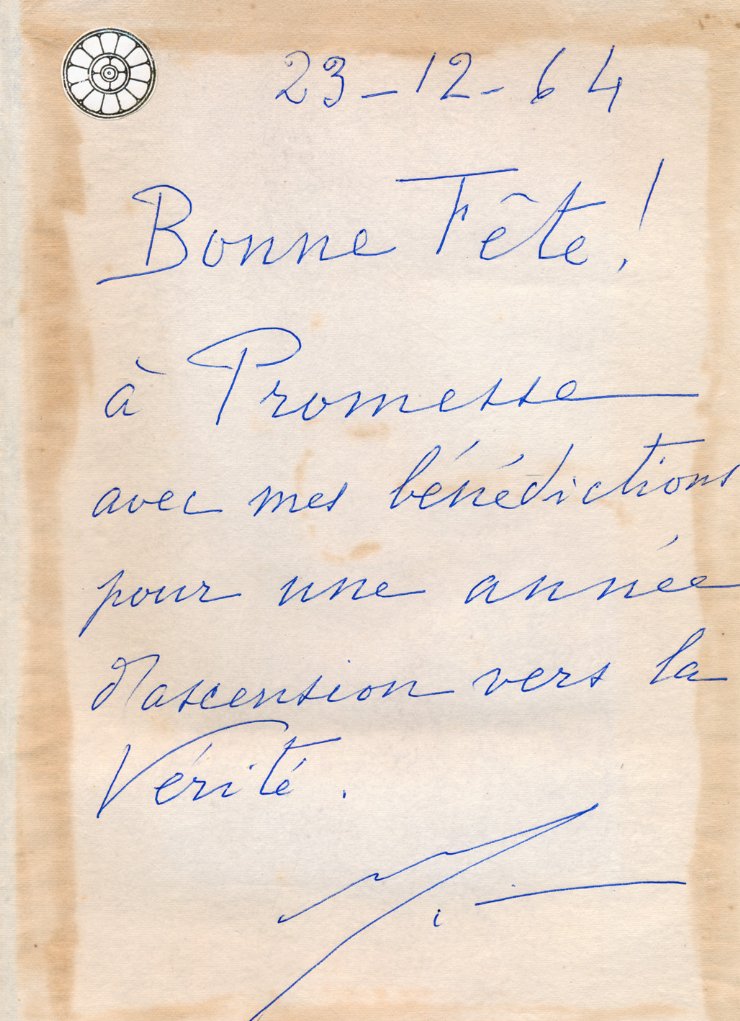 23-12-64
Bonne Fête!
à Promesse
avec mes bénédictions
pour une année
d'ascension vers la
Vérité.